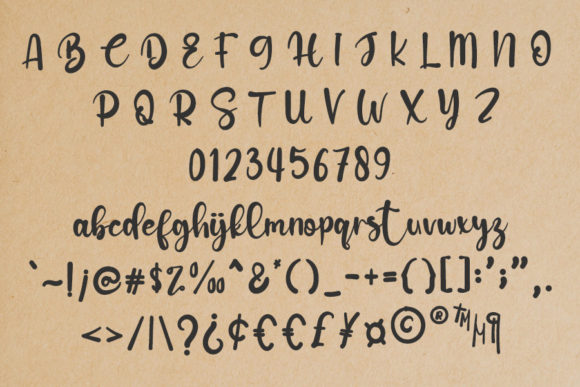 A B C D E F G H I J K L M N O
P Q R S T U V W X Y Z
0123456789
abcdefghijklmnopqrstuvwxyz
`~!¡@#$%‰^&*()_-+=(){}[]:';",.
<>/|\?¿¢€€£¥¤©®™µ¶